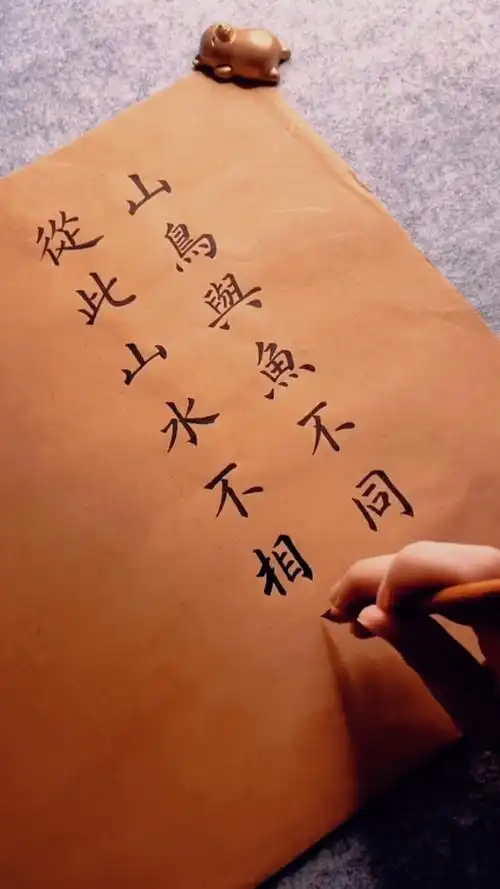 山鳥與魚不同
從此山水不相